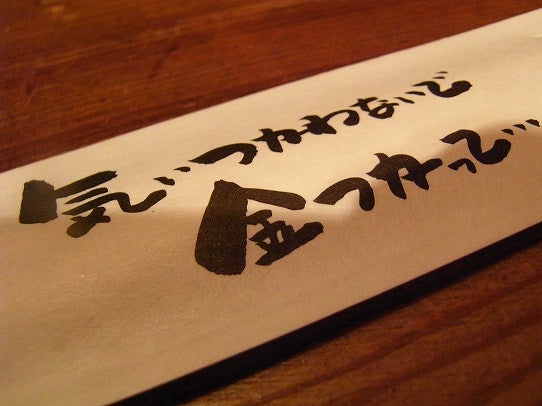 気ぃつかわないで
金つかって…